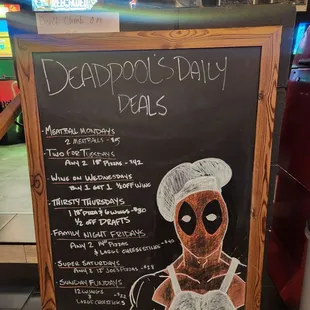 RELOADED
DEADPOOL'S DAILY
DEALS
MEATBALL MONDAYS
2 MEATBALLS - $5
TWO FOR TUESDAYS
ANY 2 18" PIZZAS - $42
WING ON WEDNESDAYS
BUY 1 GET 1 1/2 OFF WING
THIRSTY THURSDAYS
1 18" PIZZA & 6 WINGS - $30
1/2 OFF DRAFTS
FAMILY NIGHT FRIDAYS
ANY 2 14" PIZZAS
& LARGE CHEESESTICKS - $45
SUPER SATURDAYS
ANY 2 12" JOE'S PIZZAS -
SUNDAY FUNDAYS
12 WINGS
&
LARGE CHEESTICKS